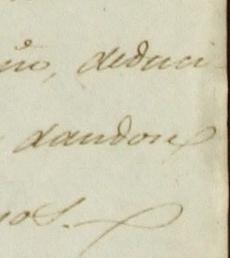 no, deduci
dandose
nos.